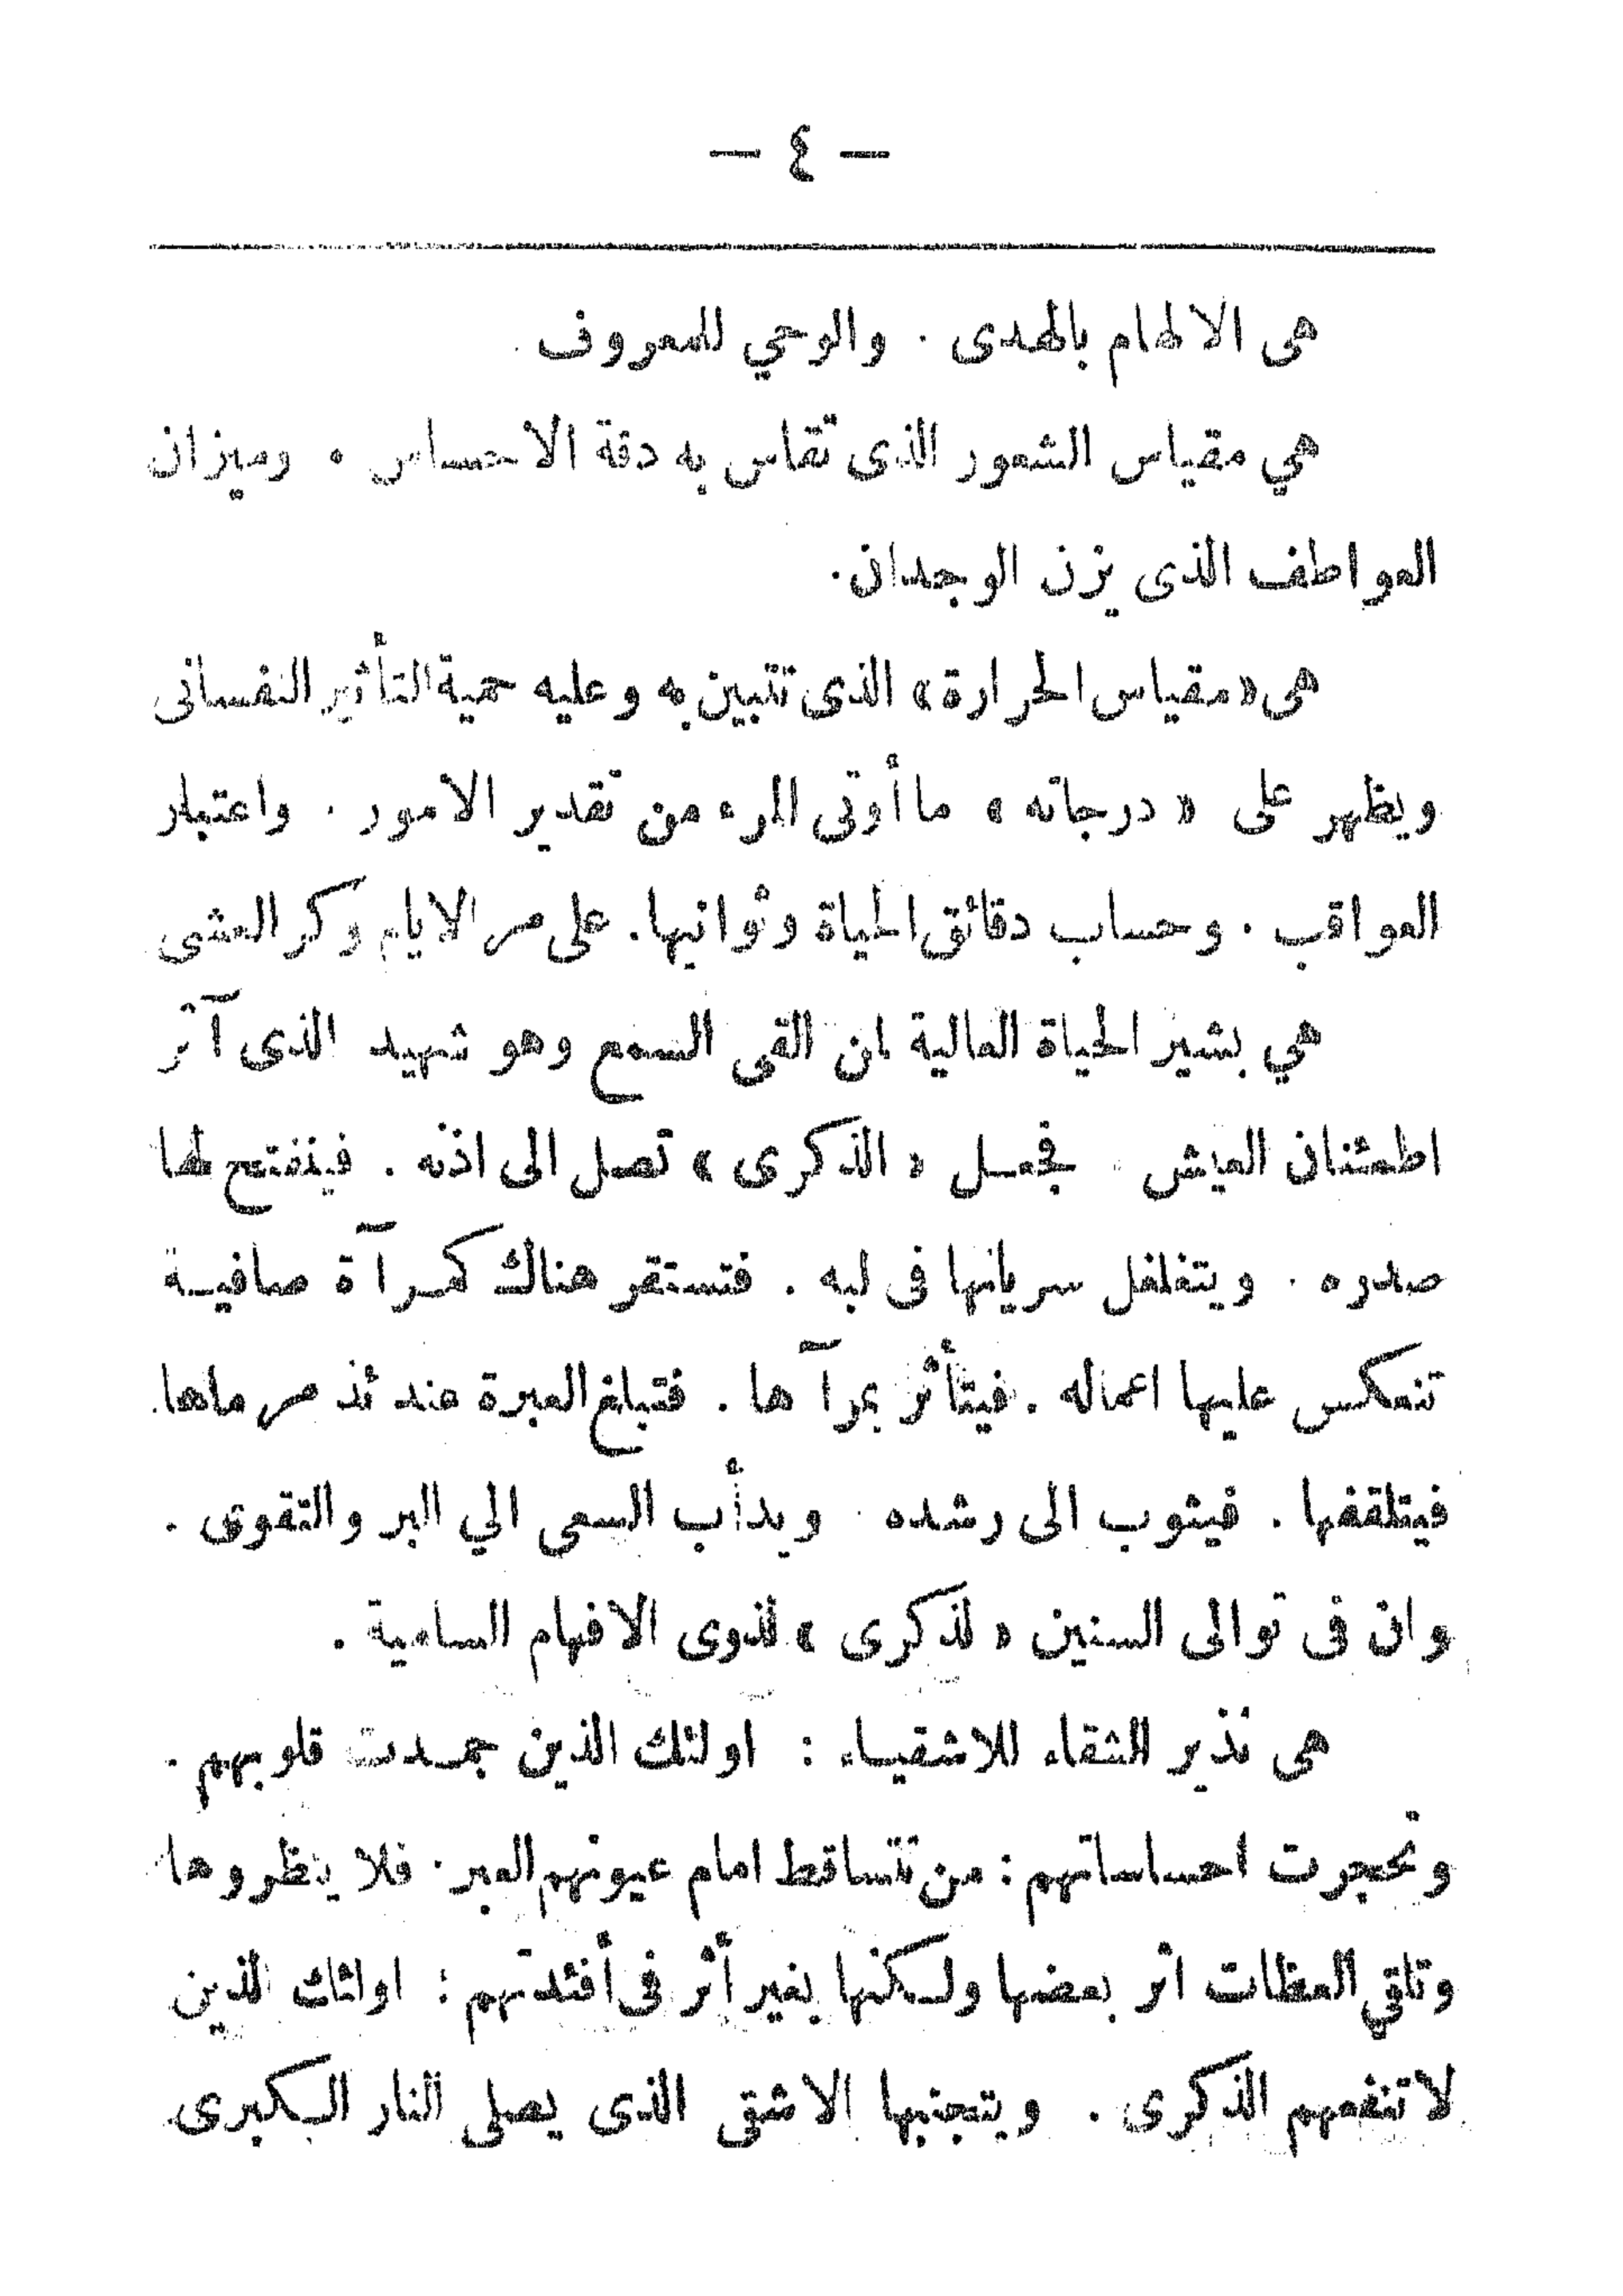 — ٤ —
هى الالهام بالهدى . والوحي للمعروف .
هي مقياس الشعور الذى تقاس به دقة الاحساس . وميزان
العواطف الذى يزن الوجدان .
هى «مقياس الحرارة» الذى تتبين به وعليه حمية التأثير النفسانى
ويظهر على « درجاته » ما أوتى المرء من تقدير الامور . واعتبار
العواقب . وحساب دقائق الحياة وثوانيها . على مر الايام وكر العشى
هي بشير الحياة العالية لمن القى السمع وهو شهيد الذى آثر
اطمئنان العيش . فجعل « الذكرى » تصل الى اذنه . فينفتح لها
صدره . ويتغلغل سريانها فى لبه . فتستقر هناك كمرآة صافية
تنعكس عليها اعماله . فيتأثر بمرآها . فتبلغ العبرة عندئذ مرماها .
فيتلقفها . فيثوب الى رشده . ويدأب السعى الي البر والتقوى .
وان فى توالى السنين « لذكرى » لذوى الافهام السامية .
هى نذير الشقاء للاشقياء : اولئك الذين جمدت قلوبهم .
وتحجرت احساساتهم : من تتساقط امام عيونهم العبر . فلا ينظروها
وتلقي العظات اثر بعضها ولكنها بغير أثر فى أفئدتهم : اولئك الذين
لا تنفعهم الذكرى . ويتجنبها الاشقى الذى يصلى النار الكبرى